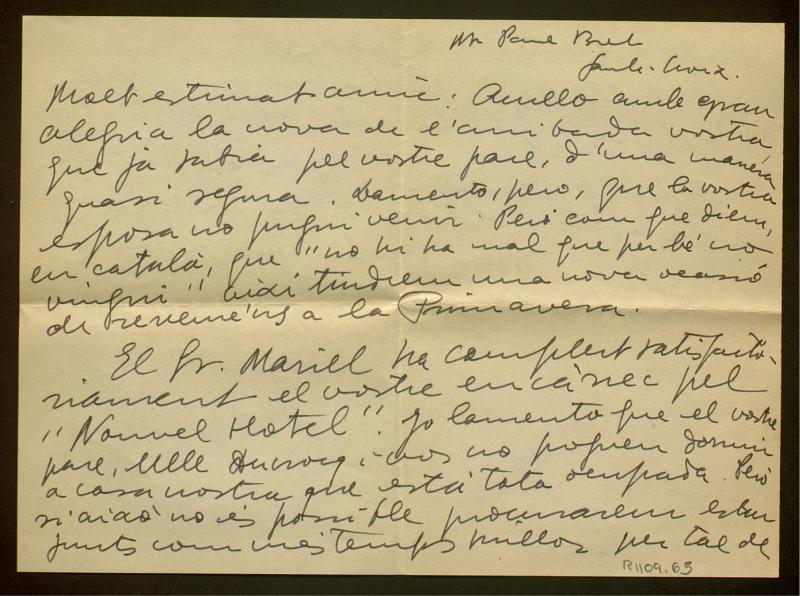 Mr Paul Brel
Molt estimat amic: Anello amb gran
alegria la nova de l'arribada vostra
que ja sabia pel vostre pare, d'una manera
quasi segura. Lamento, però, que la vostra
esposa no pugui venir. Però com que diem,
en català, que "no hi ha mal que per bé no
vingui" així tindrem una nova ocasió
de reveure'ns a la Primavera.
El Sr. Mariel ha complert satisfactò-
riament el vostre encàrrec pel
"Nouvel Hotel". Jo lamento que el vostre
pare, Mlle Ducrocq i vos no poguen dormir
a casa nostra que està tota ocupada. Però
si això no és possible procurarem estar
junts com més temps millor per tal de
R1109.63